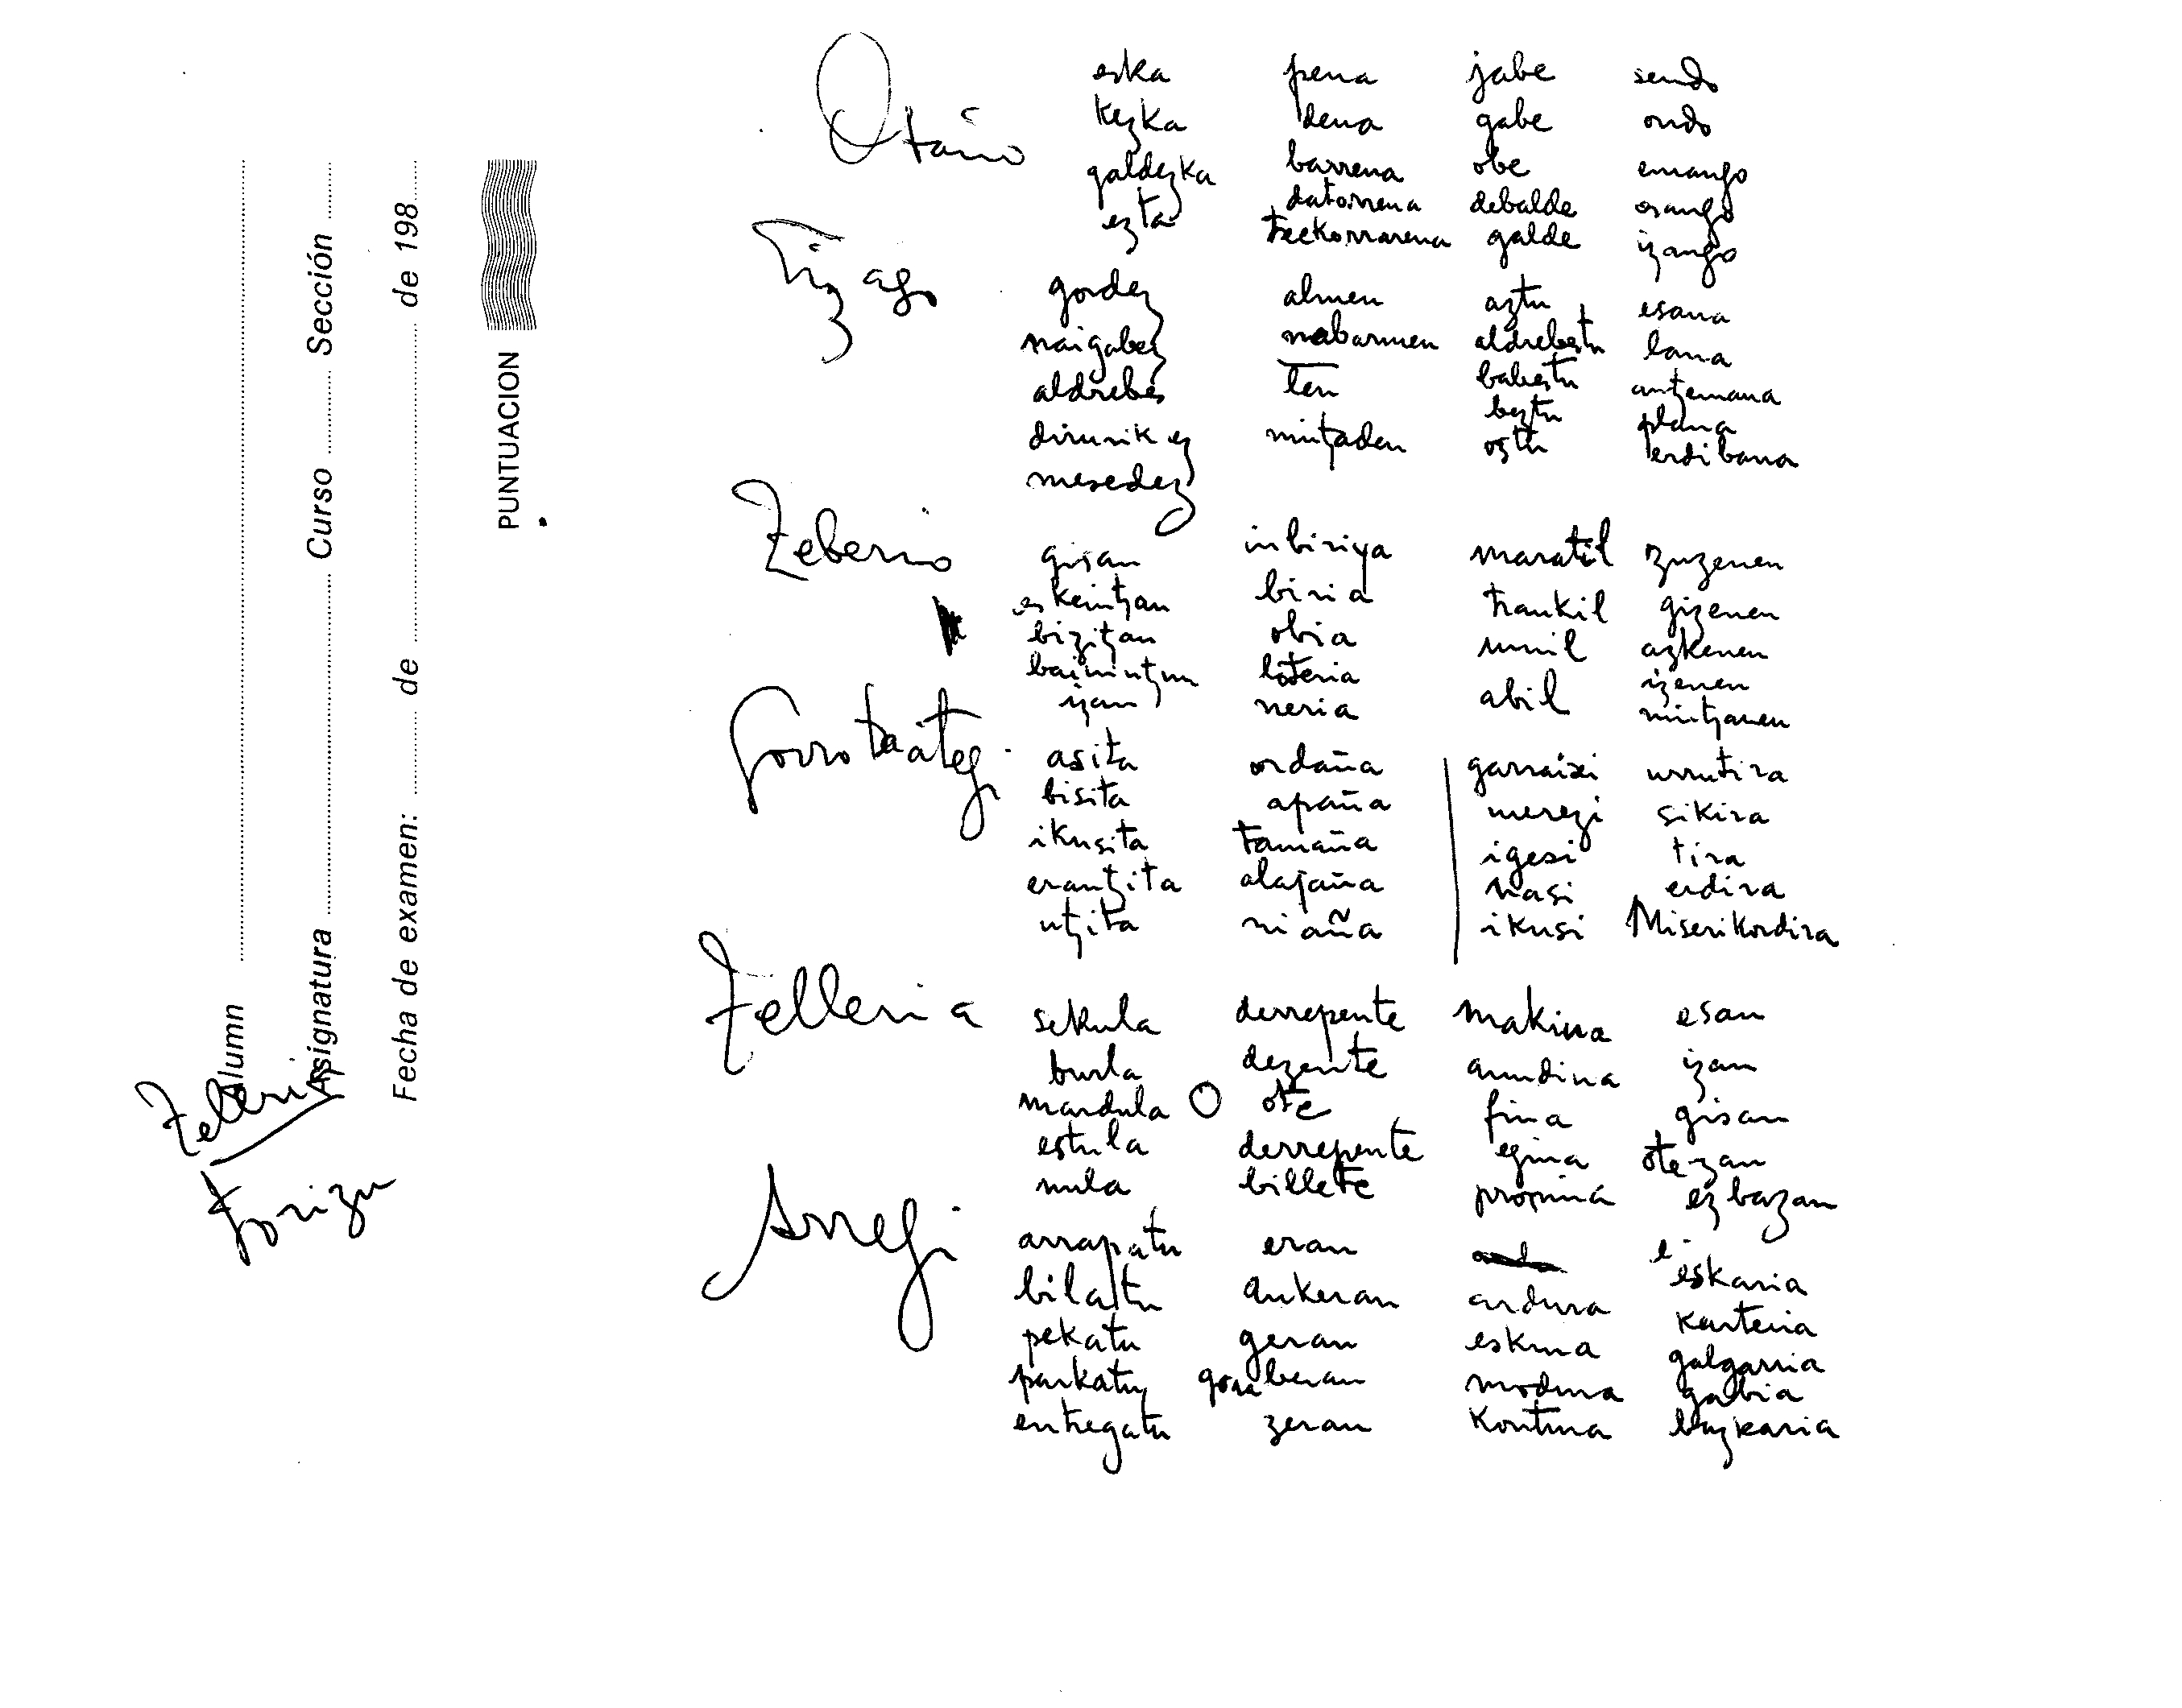 Otaño
eska pena jabe sendo
kezka dena gabe ondo
galdezka barrena obe emango
ezta datorrena debalde esango
txekorrarena galde izango
Lizaso
gordez almen aztu esana
naigabez nabarmen aldrebestu lana
aldrebes ten babestu antzemana
dirurik ez mintzaden beztu plana
mesedez ostu erdibana
Zeberio
gisan inbiriya maratil zuzenen
eskeintzan biria trankil gizenen
bizitzan obia umil azkenen
baimintzan loteria abil izenen
izan neria mintzanen
Gorrotxategi
asita ordaña garraixi urrutira
bisita apaña merezi sikira
ikusita tamaña igesi tira
erantzita alajaña nasi erdira
utzita ni aña ikusi Miserikordira
Telleria
sekula derrepente makina esan
burla dezente arrundina izan
mardula ote fina gisan
estula derrepente egina ote zan
mula billete propina ez bazan
Arregi
arrapatu eran eskaria
bilatu aukeran ardura karteria
pekatu geran eskura galgarria
parkatu gora beran modura galbia
entregatu zeran kontura bazkaria
Alumn
Asignatura Curso Sección
Fecha de examen: de de 198
PUNTUACION
Zeberio